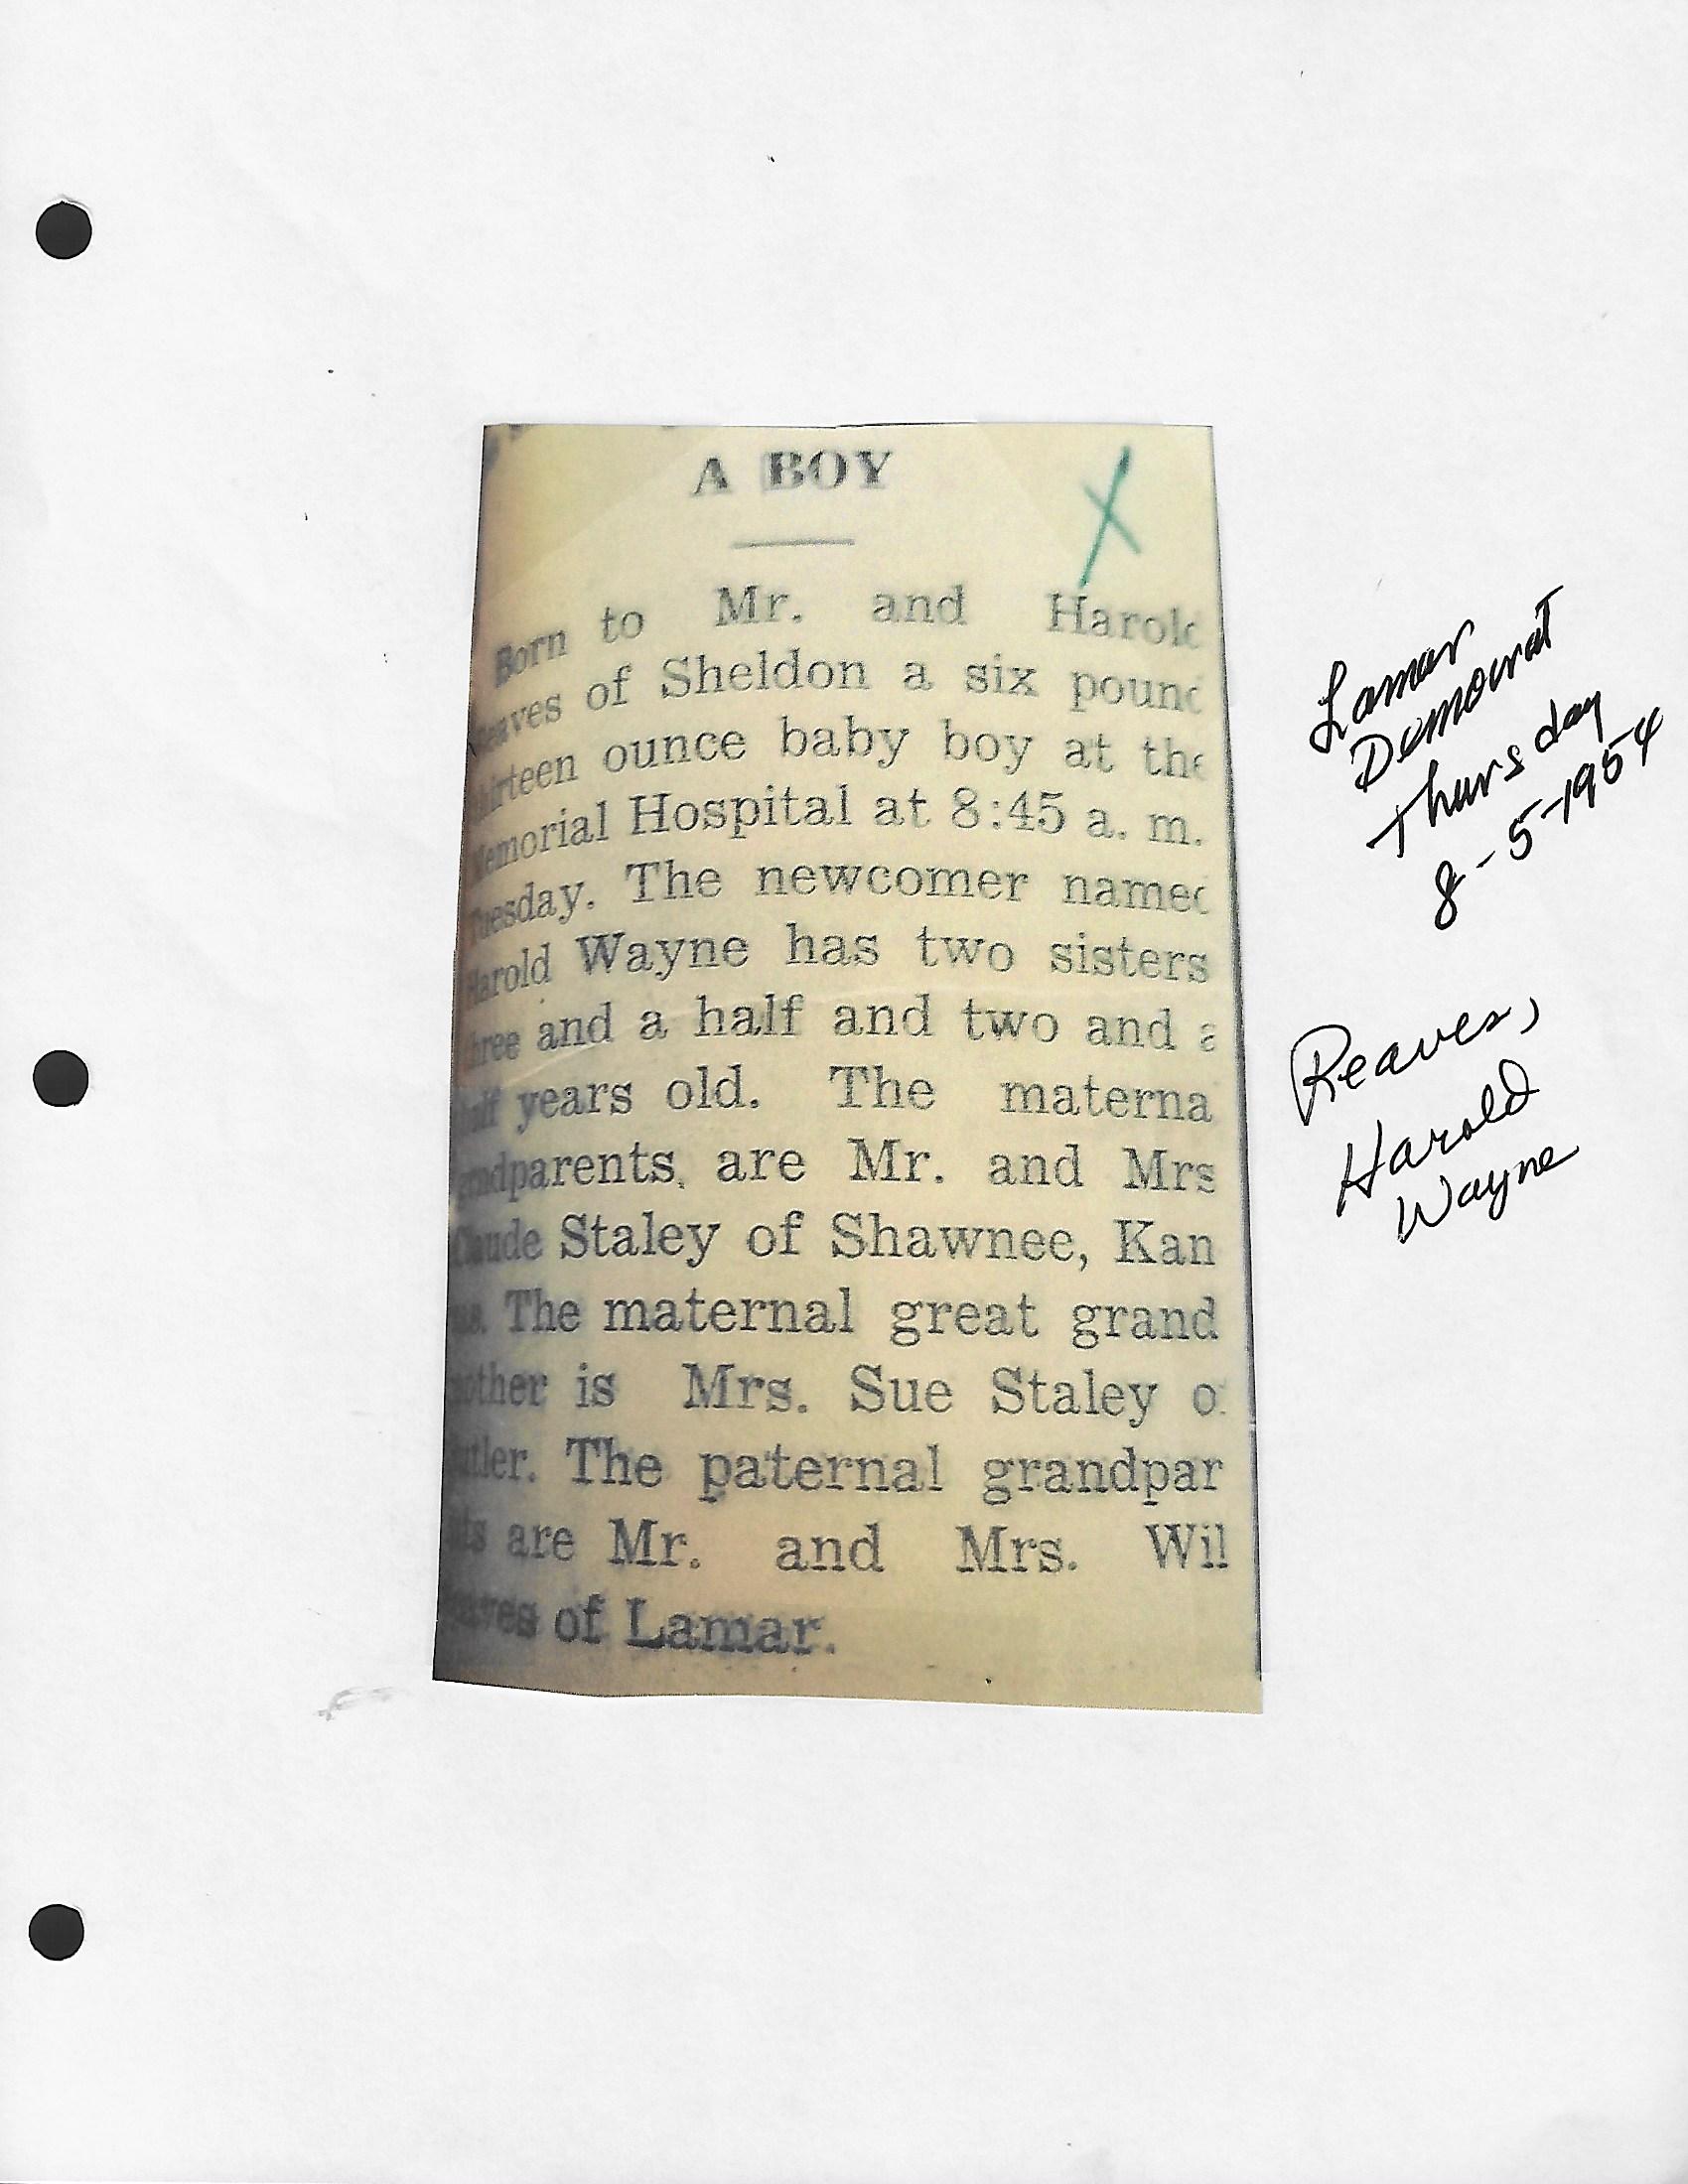 A BOY
Born to Mr. and Harold
Reaves of Sheldon a six pound
thirteen ounce baby boy at the
Memorial Hospital at 8:45 a. m.
Tuesday. The newcomer named
Harold Wayne has two sisters
three and a half and two and a
half years old. The materna
grandparents are Mr. and Mrs
Claude Staley of Shawnee, Kan
sas. The maternal great grand
mother is Mrs. Sue Staley o
Butler. The paternal grandpar
ents are Mr. and Mrs. Wil
Reaves of Lamar.
Lamar
Democrat
Thursday
8-5-1954
Reaves,
Harold
Wayne